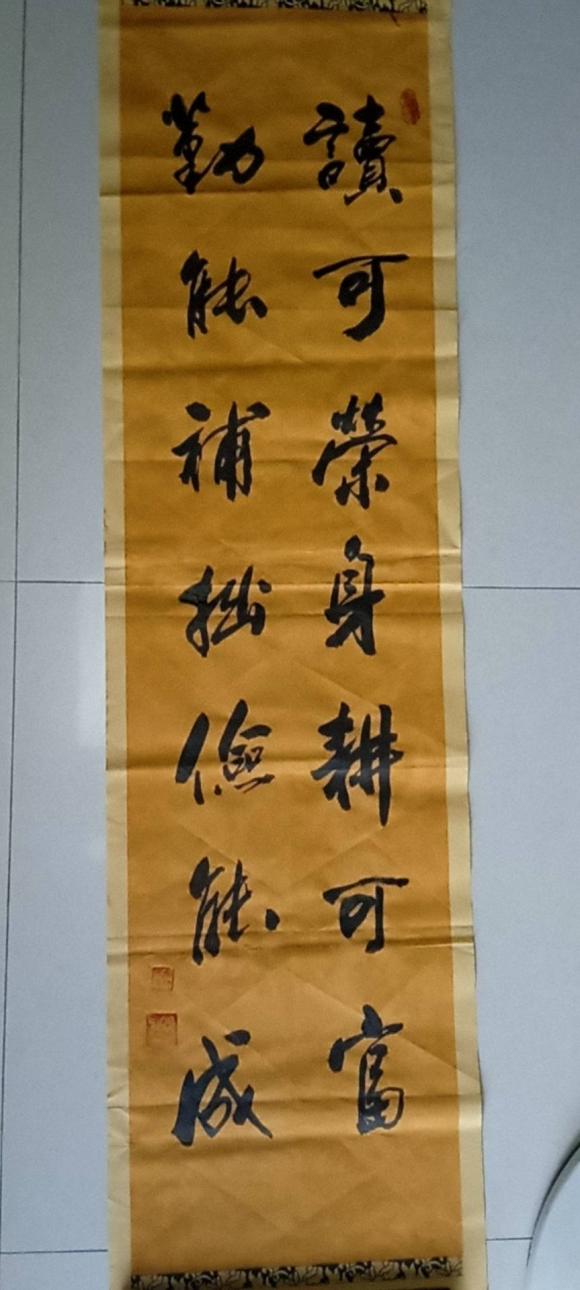 讀可榮身耕可富
勤能補拙儉能成